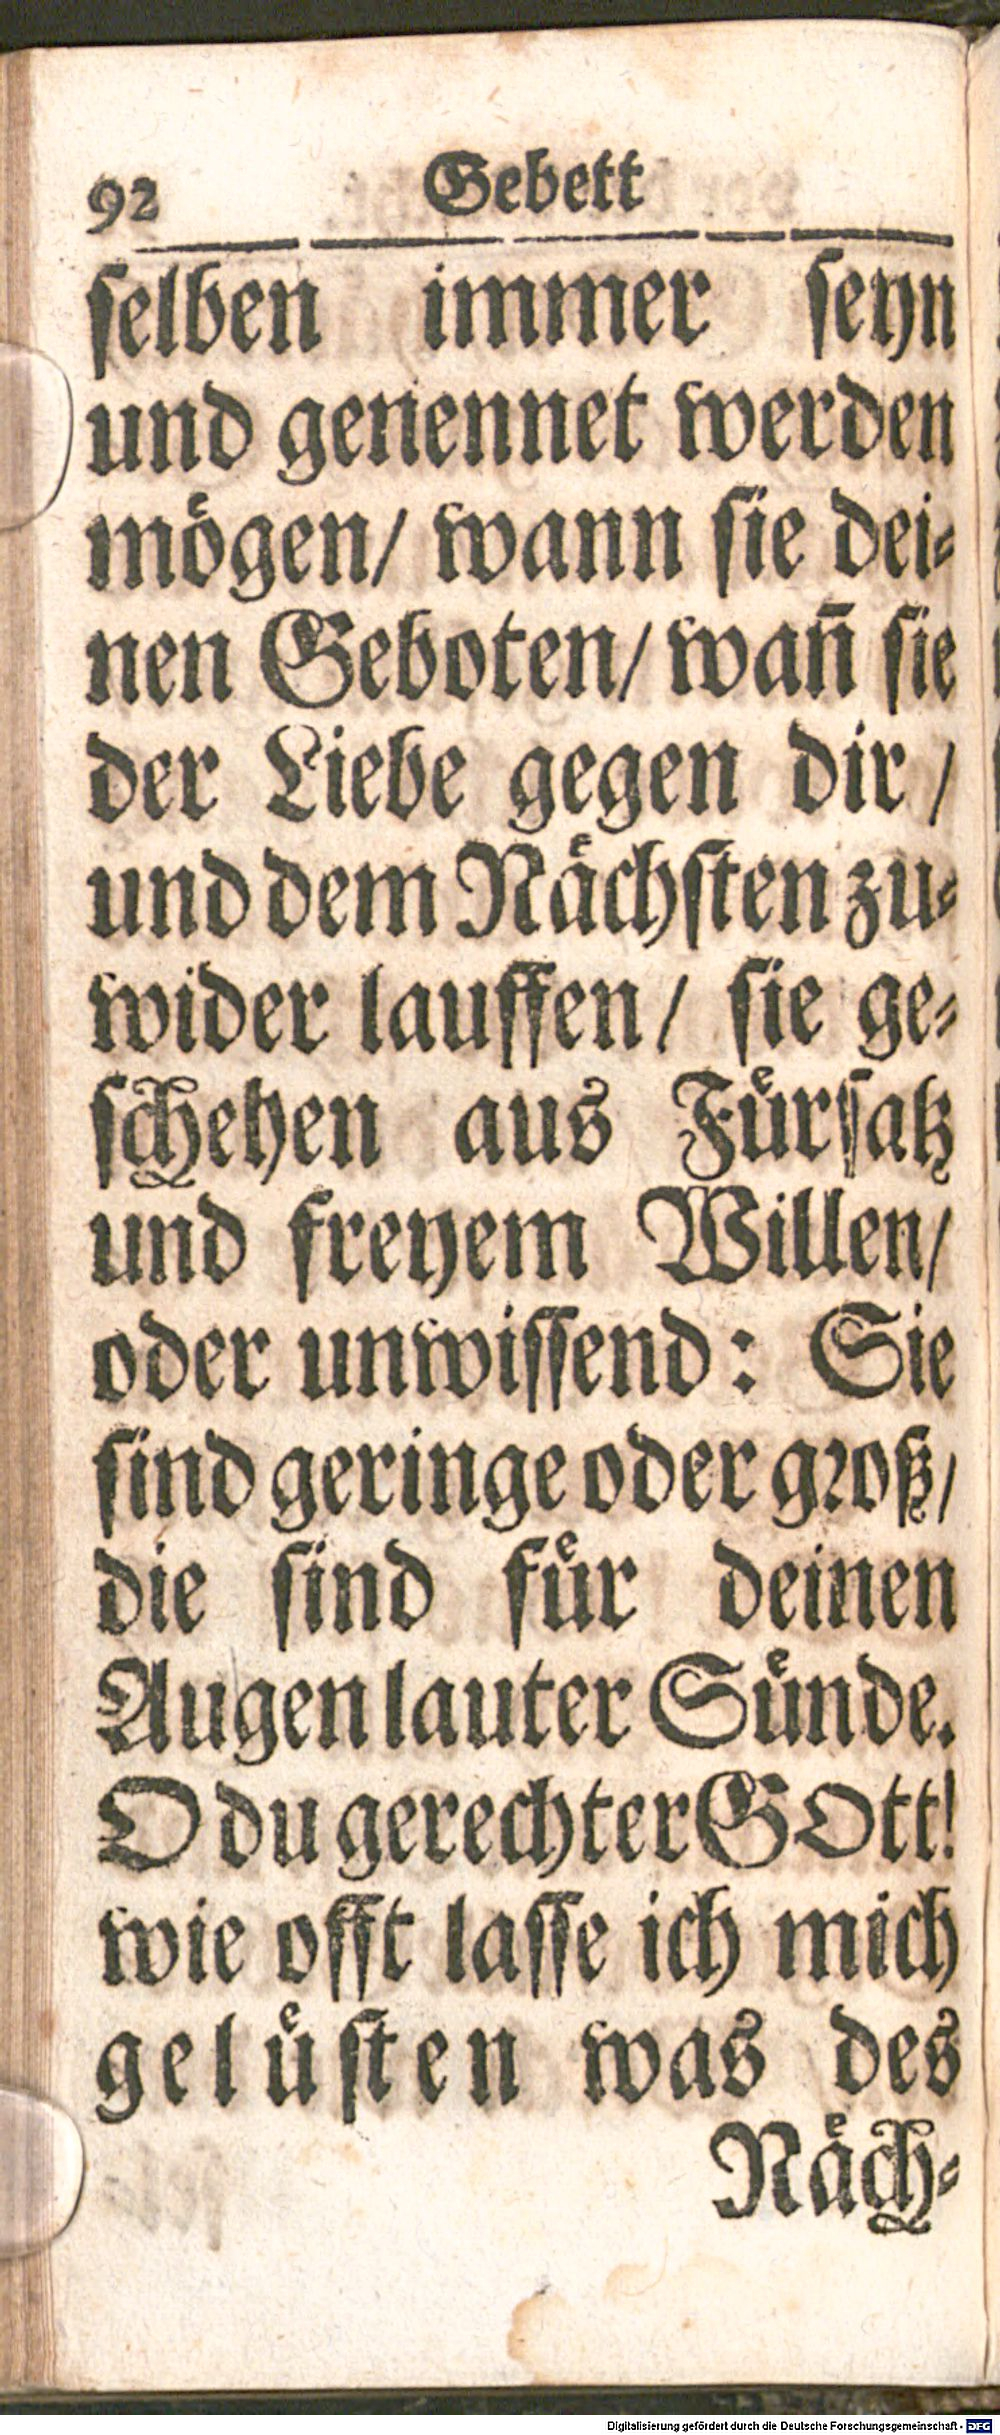 92 Gebett
ſelben immer ſeyn
und genennet werden
mögen/ wann ſie dei⸗
nen Geboten/ wañ ſie
der Liebe gegen dir /
und dem Naͤchſten zu⸗
wider lauffen/ ſie ge⸗
ſchehen aus Fuͤrſatz
und freyem Willen/
oder unwiſſend: Sie
ſind geringe oder gꝛoß/
die ſind fuͤr deinen
Augen lauter Suͤnde.
O du gerechter GOtt!
wie offt laſſe ich mich
geluͤſten was des
Naͤch⸗
Digitalisierung gefördert durch die Deutsche Forschungsgemeinschaft - DFG